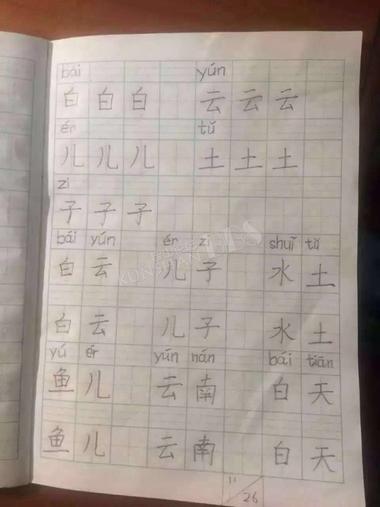 bái yún
白 白 白 云 云 云
ér tǔ
儿 儿 儿 土 土 土
zi
子 子 子
bái yún ér zi shuǐ tǔ
白 云 儿 子 水 土
白 云 儿 子 水 土
yú ér yún nán bái tiān
鱼 儿 云 南 白 天
鱼 儿 云 南 白 天
11/26